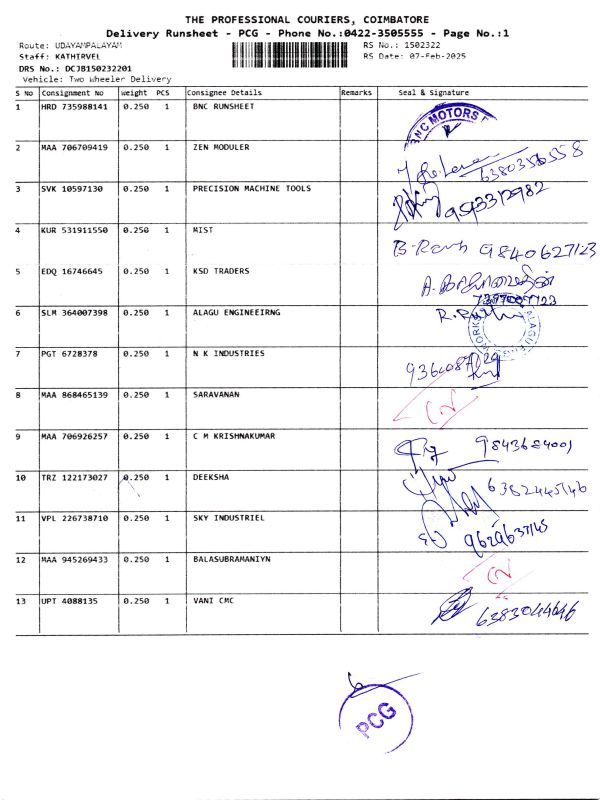 THE PROFESSIONAL COURIERS, COIMBATORE
Delivery Runsheet - PCG - Phone No.:0422-3505555 - Page No.:1
Route: UDAYAMPALAYAM RS No.: 1502322
Staff: KATHIRVEL RS Date: 07-Feb-2025
DRS No.: DCJB150232201
Vehicle: Two Wheeler Delivery
S No Consignment No Weight PCS Consignee Details Remarks Seal & Signature
1 HRD 735988141 0.250 1 BNC RUNSHEET BNC MOTORS
2 MAA 706709419 0.250 1 ZEN MODULER 6380356558
3 SVK 10597130 0.250 1 PRECISION MACHINE TOOLS 9543312982
4 KUR 531911550 0.250 1 MIST 9840627123
5 EDQ 16746645 0.250 1 KSD TRADERS
6 SLM 364007398 0.250 1 ALAGU ENGINEEIRNG
7 PGT 6728378 0.250 1 N K INDUSTRIES
8 MAA 868465139 0.250 1 SARAVANAN
9 MAA 706926257 0.250 1 C M KRISHNAKUMAR 9843684001
10 TRZ 122173027 0.250 1 DEEKSHA 6382445146
11 VPL 226738710 0.250 1 SKY INDUSTRIEL 9629637145
12 MAA 945269433 0.250 1 BALASUBRAMANIYN
13 UPT 4088135 0.250 1 VANI CMC 6383044646
PCG